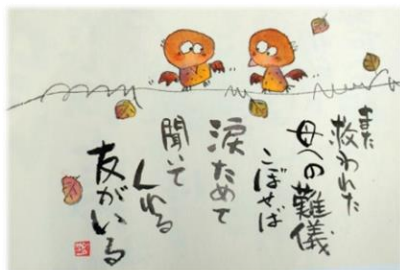 また
救われた
母への難儀
こぼせば
涙ためて
聞いて
くれる
友がいる